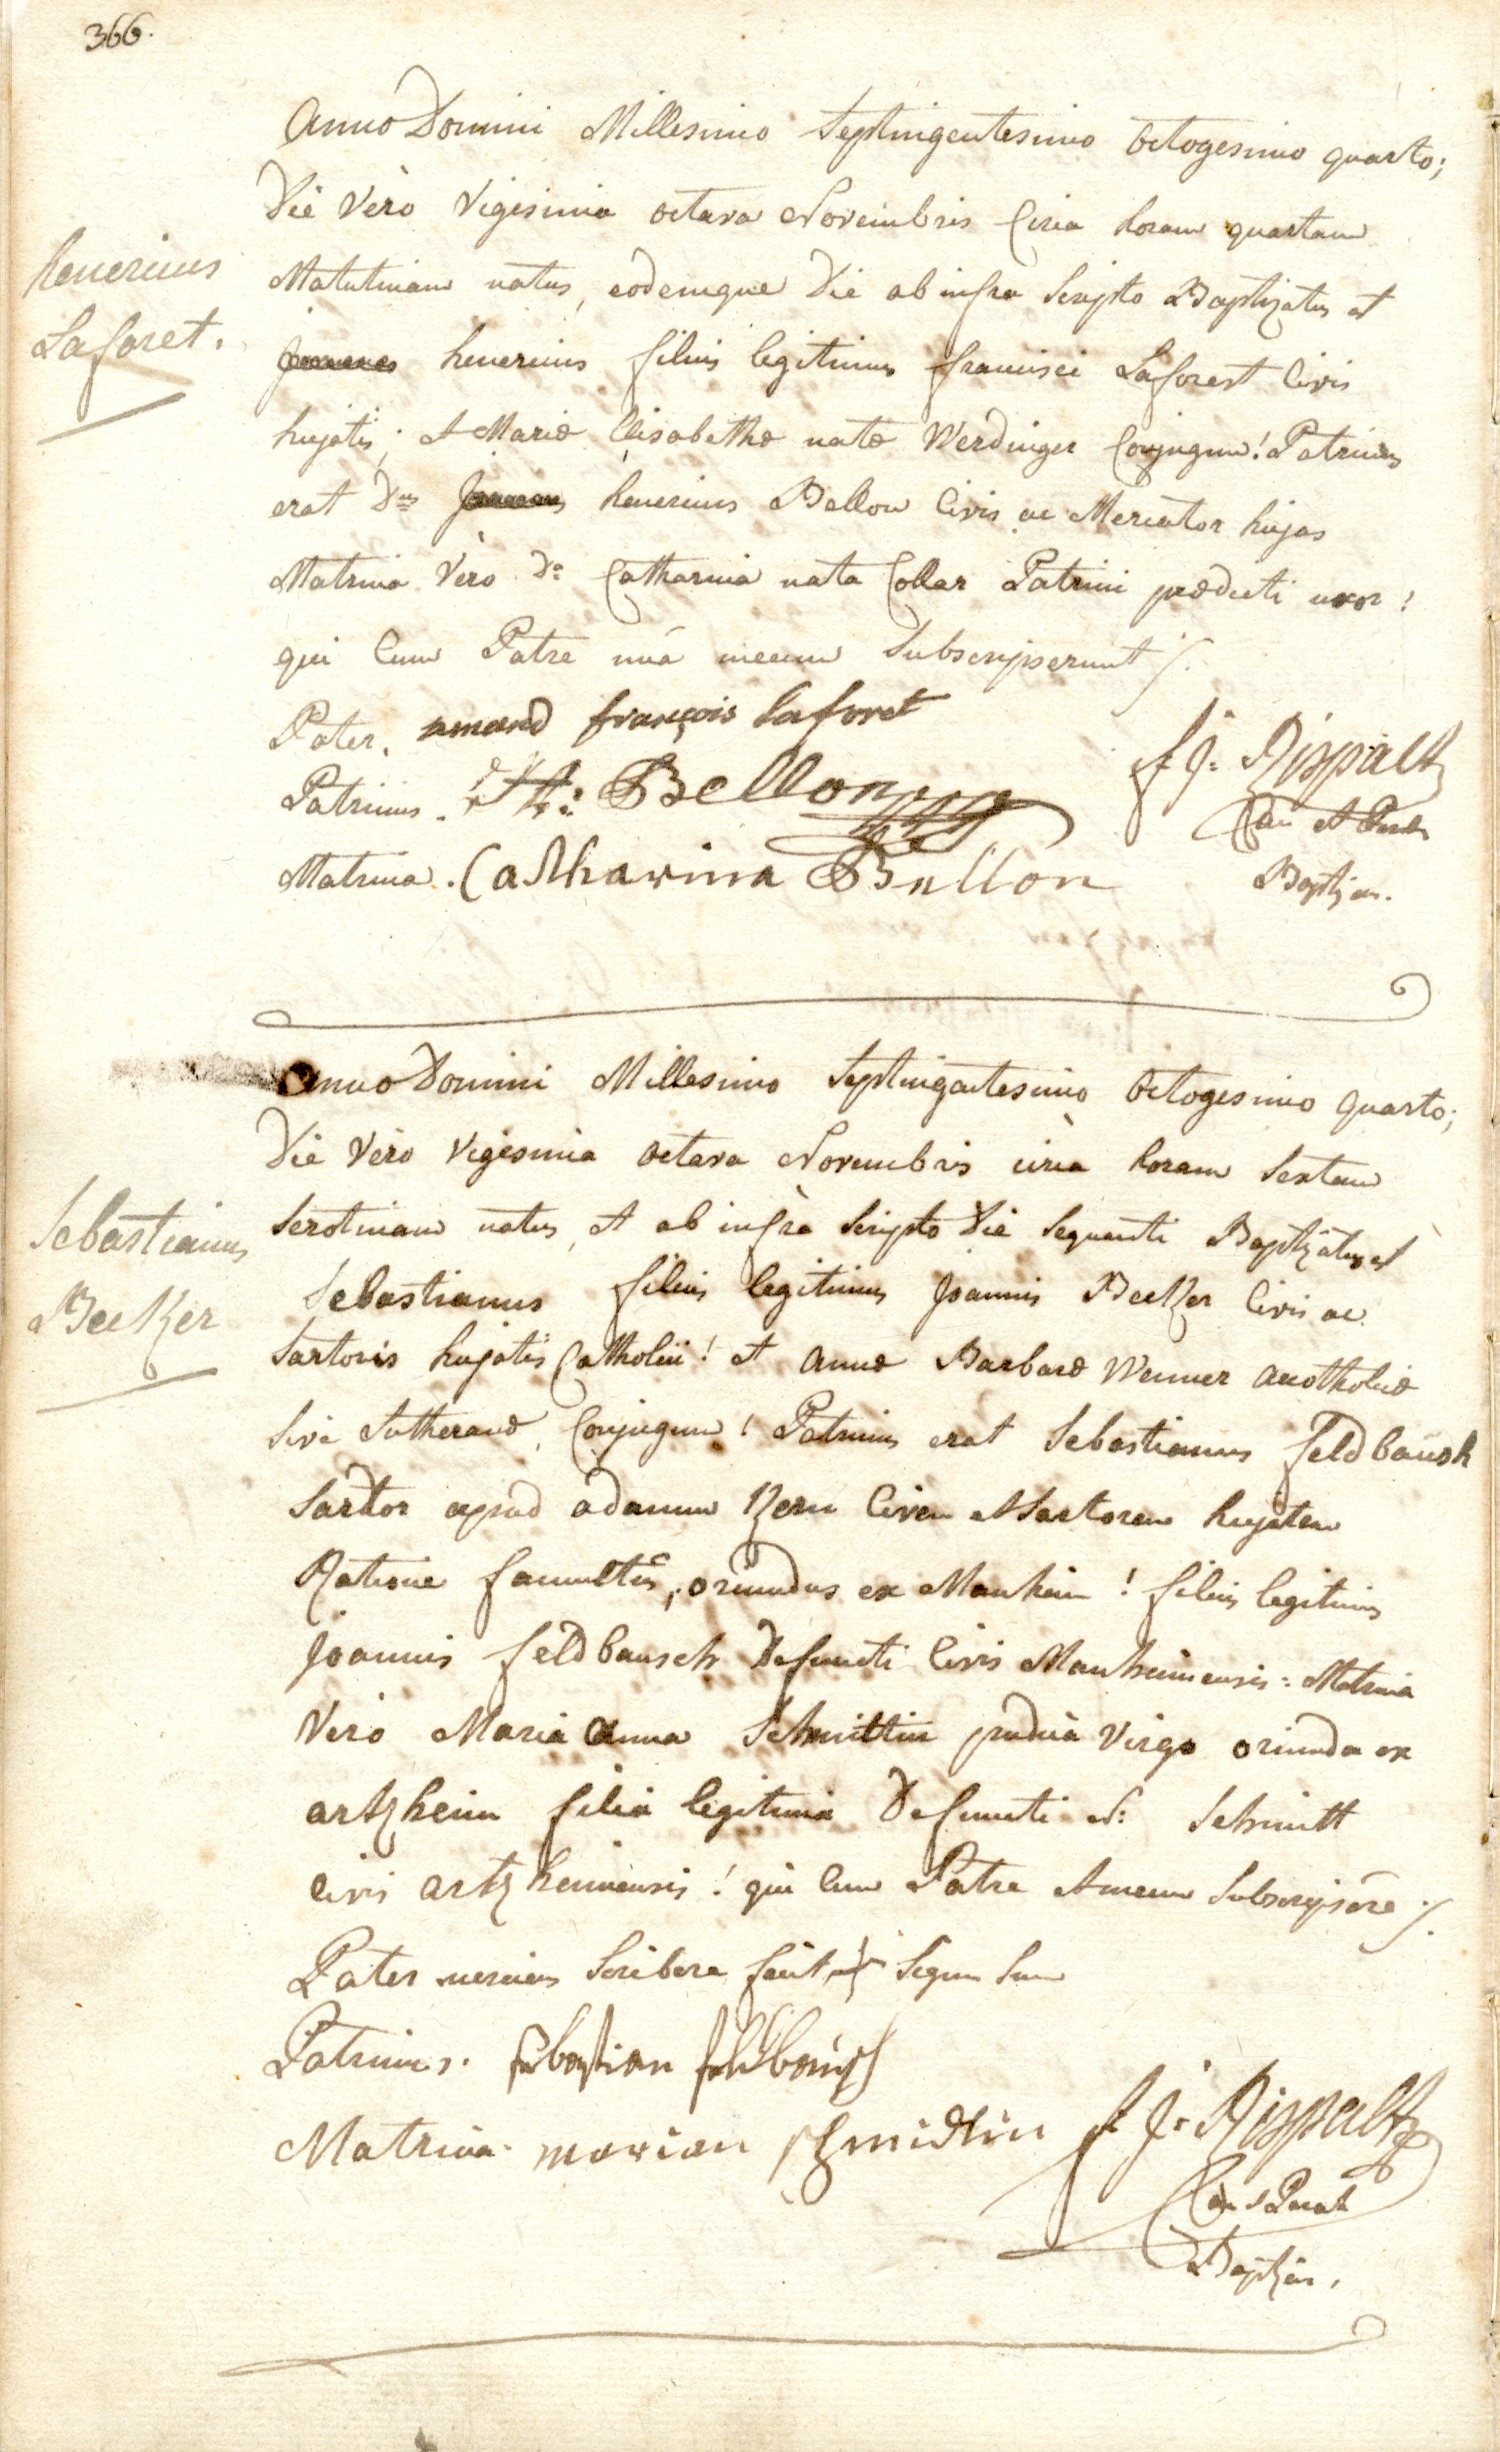 366.
Anno Domini Millesimo Septingentesimo Octogesimo quarto;
Die Vero Vigesima octava Novembris Circa horam quartam
Matutinam natus, eodemque Die ab infra Scripto Baptizatus et
henericus
Laforet.
henericus filius legitimus francisci Laforest Civis
hujatis; et Mariæ Elisabethæ natæ Werdinger Conjugum! Patrinus
erat Dnus henericus Bellon Civis ac Mercator hujas
Matrina Vero Da Catharina nata Collar Patrini prædicti uxor!
qui Cum Patre unà mecum Subscripserunt ./.
Pater. amand françois laforet
Patrinus. H: Bellon
Matrina. Catharina Bellon
f. J. Rispaltz
Baptizans.
Anno Domini Millesimo Septingentesimo Octogesimo Quarto;
Die Vero Vigesima octava Novembris circa horam Sextam
Serotinam natus, et ab infra Scripto Die Sequenti Baptizatus est
Sebastianus
Becker
Sebastianus filius legitimus Joannis Becker Civis ac
Sartoris hujatis Catholici! et Annæ Barbaræ Wenner acatholicæ
Sive Lutheranæ, Conjugum! Patrinus erat Sebastianus Feldbaush
Sartor apud adamum Kern Civem et Sartorem hujatem
Ratione famulatûs, oriundus ex Manheim! filius legitimus
Joannis Feldbausch Defuncti Civis Manheimensis: Matrina
Vero Maria Anna Schmittin pudica Virgo oriunda ex
artzheim filia legitima Defuncti N: Schmitt
Civis artzheimensis! qui Cum Patre et mecum Subscripsere ./.
Pater nesciens Scribere fecit Signum Suum
Patrinus. Sebastian feldbausch
Matrina. marian schmidtin
f. J. Rispaltz
Baptizans.